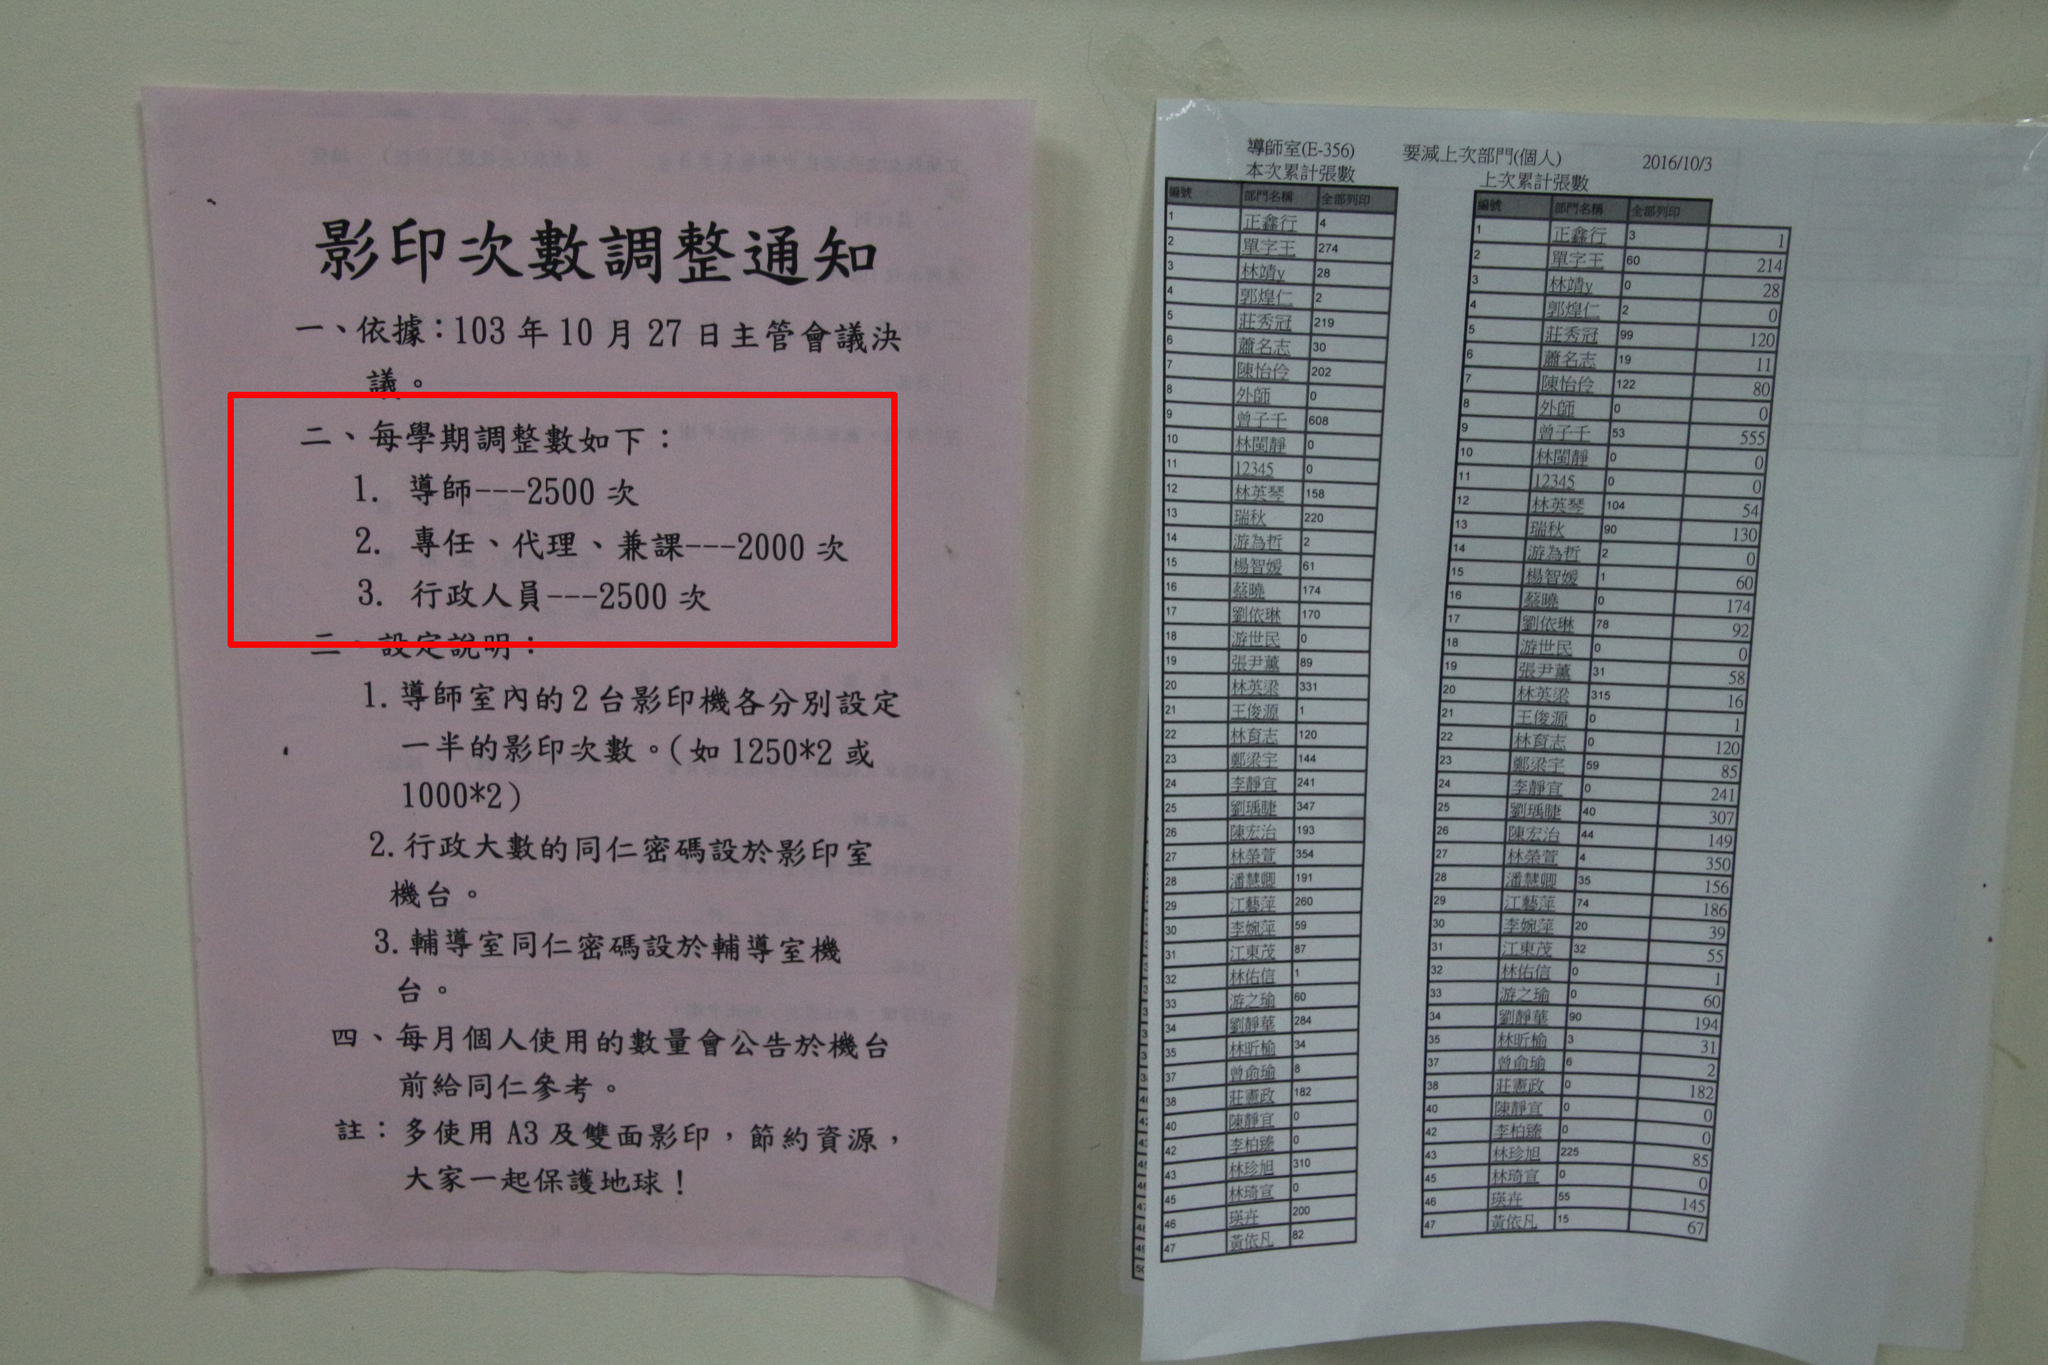 影印次數調整通知
一、依據：103年10月27日主管會議決
議。
二、每學期調整數如下：
1. 導師---2500次
2. 專任、代理、兼課---2000次
3. 行政人員---2500次
三、設定說明：
1.導師室內的2台影印機各分別設定
一半的影印次數。(如1250*2或
1000*2)
2.行政大數的同仁密碼設於影印室
機台。
3.輔導室同仁密碼設於輔導室機
台。
四、每月個人使用的數量會公告於機台
前給同仁參考。
註：多使用A3及雙面影印，節約資源，
大家一起保護地球！
導師室(E-356) 要減上次部門(個人) 2016/10/3
本次累計張數 上次累計張數
編號 部門名稱 全部列印 編號 部門名稱 全部列印
1 正鑫行 4 1 正鑫行 3 1
2 單字王 274 2 單字王 60 214
3 林靖y 28 3 林靖y 0 28
4 郭煌仁 2 4 郭煌仁 2 0
5 莊秀冠 219 5 莊秀冠 99 120
6 蕭名志 30 6 蕭名志 19 11
7 陳怡伶 202 7 陳怡伶 122 80
8 外師 0 8 外師 0 0
9 曾子千 608 9 曾子千 53 555
10 林閩靜 0 10 林閩靜 0 0
11 12345 0 11 12345 0 0
12 林英琴 158 12 林英琴 104 54
13 瑞秋 220 13 瑞秋 90 130
14 游為哲 2 14 游為哲 2 0
15 楊智媛 61 15 楊智媛 1 60
16 蔡曉 174 16 蔡曉 0 174
17 劉依琳 170 17 劉依琳 78 92
18 游世民 0 18 游世民 0 0
19 張尹薰 89 19 張尹薰 31 58
20 林英梁 331 20 林英梁 315 16
21 王俊源 1 21 王俊源 0 1
22 林育志 120 22 林育志 0 120
23 鄭梁宇 144 23 鄭梁宇 59 85
24 李靜宜 241 24 李靜宜 0 241
25 劉瑀睫 347 25 劉瑀睫 40 307
26 陳宏治 193 26 陳宏治 44 149
27 林榮萱 354 27 林榮萱 4 350
28 潘慧卿 191 28 潘慧卿 35 156
29 江藝萍 260 29 江藝萍 74 186
30 李婉萍 59 30 李婉萍 20 39
31 江東茂 87 31 江東茂 32 55
32 林佑信 1 32 林佑信 0 1
33 游之瑜 60 33 游之瑜 0 60
34 劉靜華 284 34 劉靜華 90 194
35 林昕榆 34 35 林昕榆 3 31
37 曾俞瑜 8 37 曾俞瑜 6 2
38 莊憲政 182 38 莊憲政 0 182
40 陳靜宜 0 40 陳靜宜 0 0
42 李柏臻 0 42 李柏臻 0 0
43 林珍旭 310 43 林珍旭 225 85
45 林琦宣 0 45 林琦宣 0 0
46 瑛卉 200 46 瑛卉 55 145
47 黃依凡 82 47 黃依凡 15 67